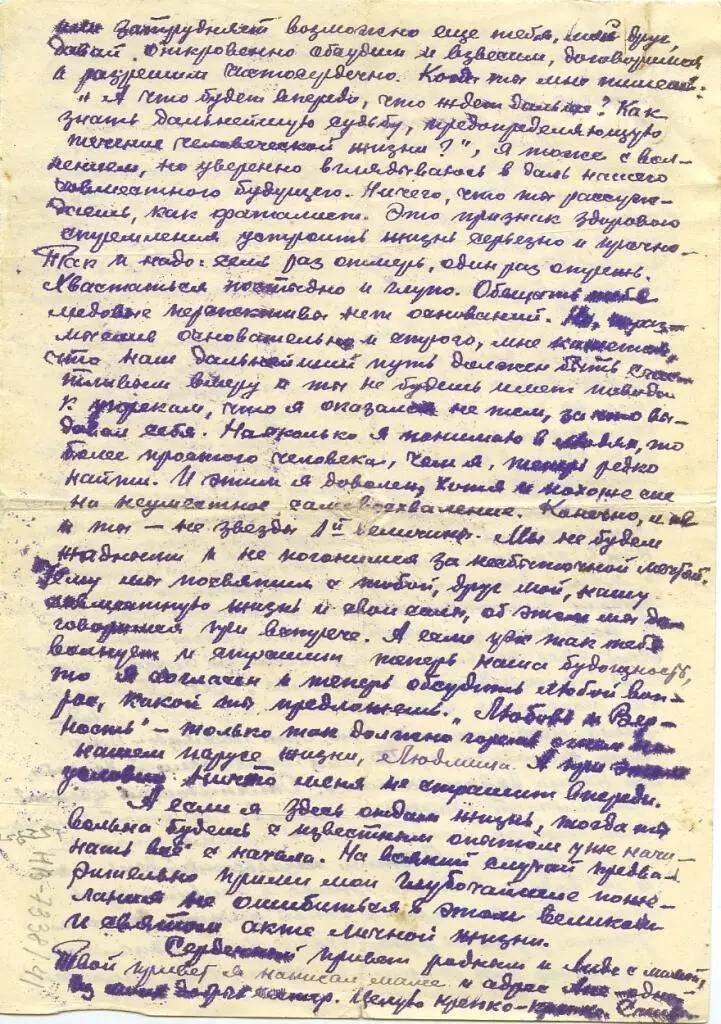 затрудняет возможно еще тебя, мой друг
давай откровенно обсудим и взвесим, договоримся
и разрешим чистосердечно. Когда ты мне пишешь:
"А что будет впереди, что ждет дальше? Как
знать дальнейшую судьбу, предопределяющую
течение человеческой жизни?", Я тоже с вол-
нением, но уверенно вглядываюсь в даль нашего
совместного будущего. Ничего, что ты рассуж-
даешь, как фаталист. Это признак здорового
стремления устроить жизнь серьезно и прочно.
Так и надо: семь раз отмерь, один раз отрежь.
Хвастаться постыдно и глупо. Обещать тебе
медовые перспективы нет оснований. Но, раз-
мыслив основательно и строго, мне кажется,
что наш дальнейший путь должен быть счас-
тливым и ты не будешь иметь повода
к упрекам, что я оказался не тем, за кого вы-
давал себя. Насколько я понимаю в людях, то
более простого человека, чем я, теперь редко
найти. И этим я доволен, хотя и похоже сие
на неуместное самовосхваление. Конечно, и я
и ты — не звезды 1й величины. Мы не будем
жадности и не погонимся за несбыточной мечтой.
Чему мы посвятим с тобой, друг мой, нашу
совместную жизнь и свои силы, об этом мы до-
говоримся при встрече. А если уж так тебя
волнует и страшит теперь наша будущность,
то Я согласен и теперь обсудить любой воп-
рос, какой ты предложишь. „Любовь и Вер-
ность" – только так должно гореть
нашем парусе жизни, Людмила. А при этом
условии ничто меня не страшит впереди.
А если я здесь отдам жизнь, тогда ты
вольна будешь с известным опытом уже начи-
нать всё с начала. На всякий случай предва-
рительно прими мои глубочайшие поже-
лания не ошибиться в этом великом
и святом акте личной жизни.
Сердечный привет родным и Лиде с мамой.
Твой привет я написал маме и адрес
из сестр. Целую крепко-крепко.
НВ-7338/41